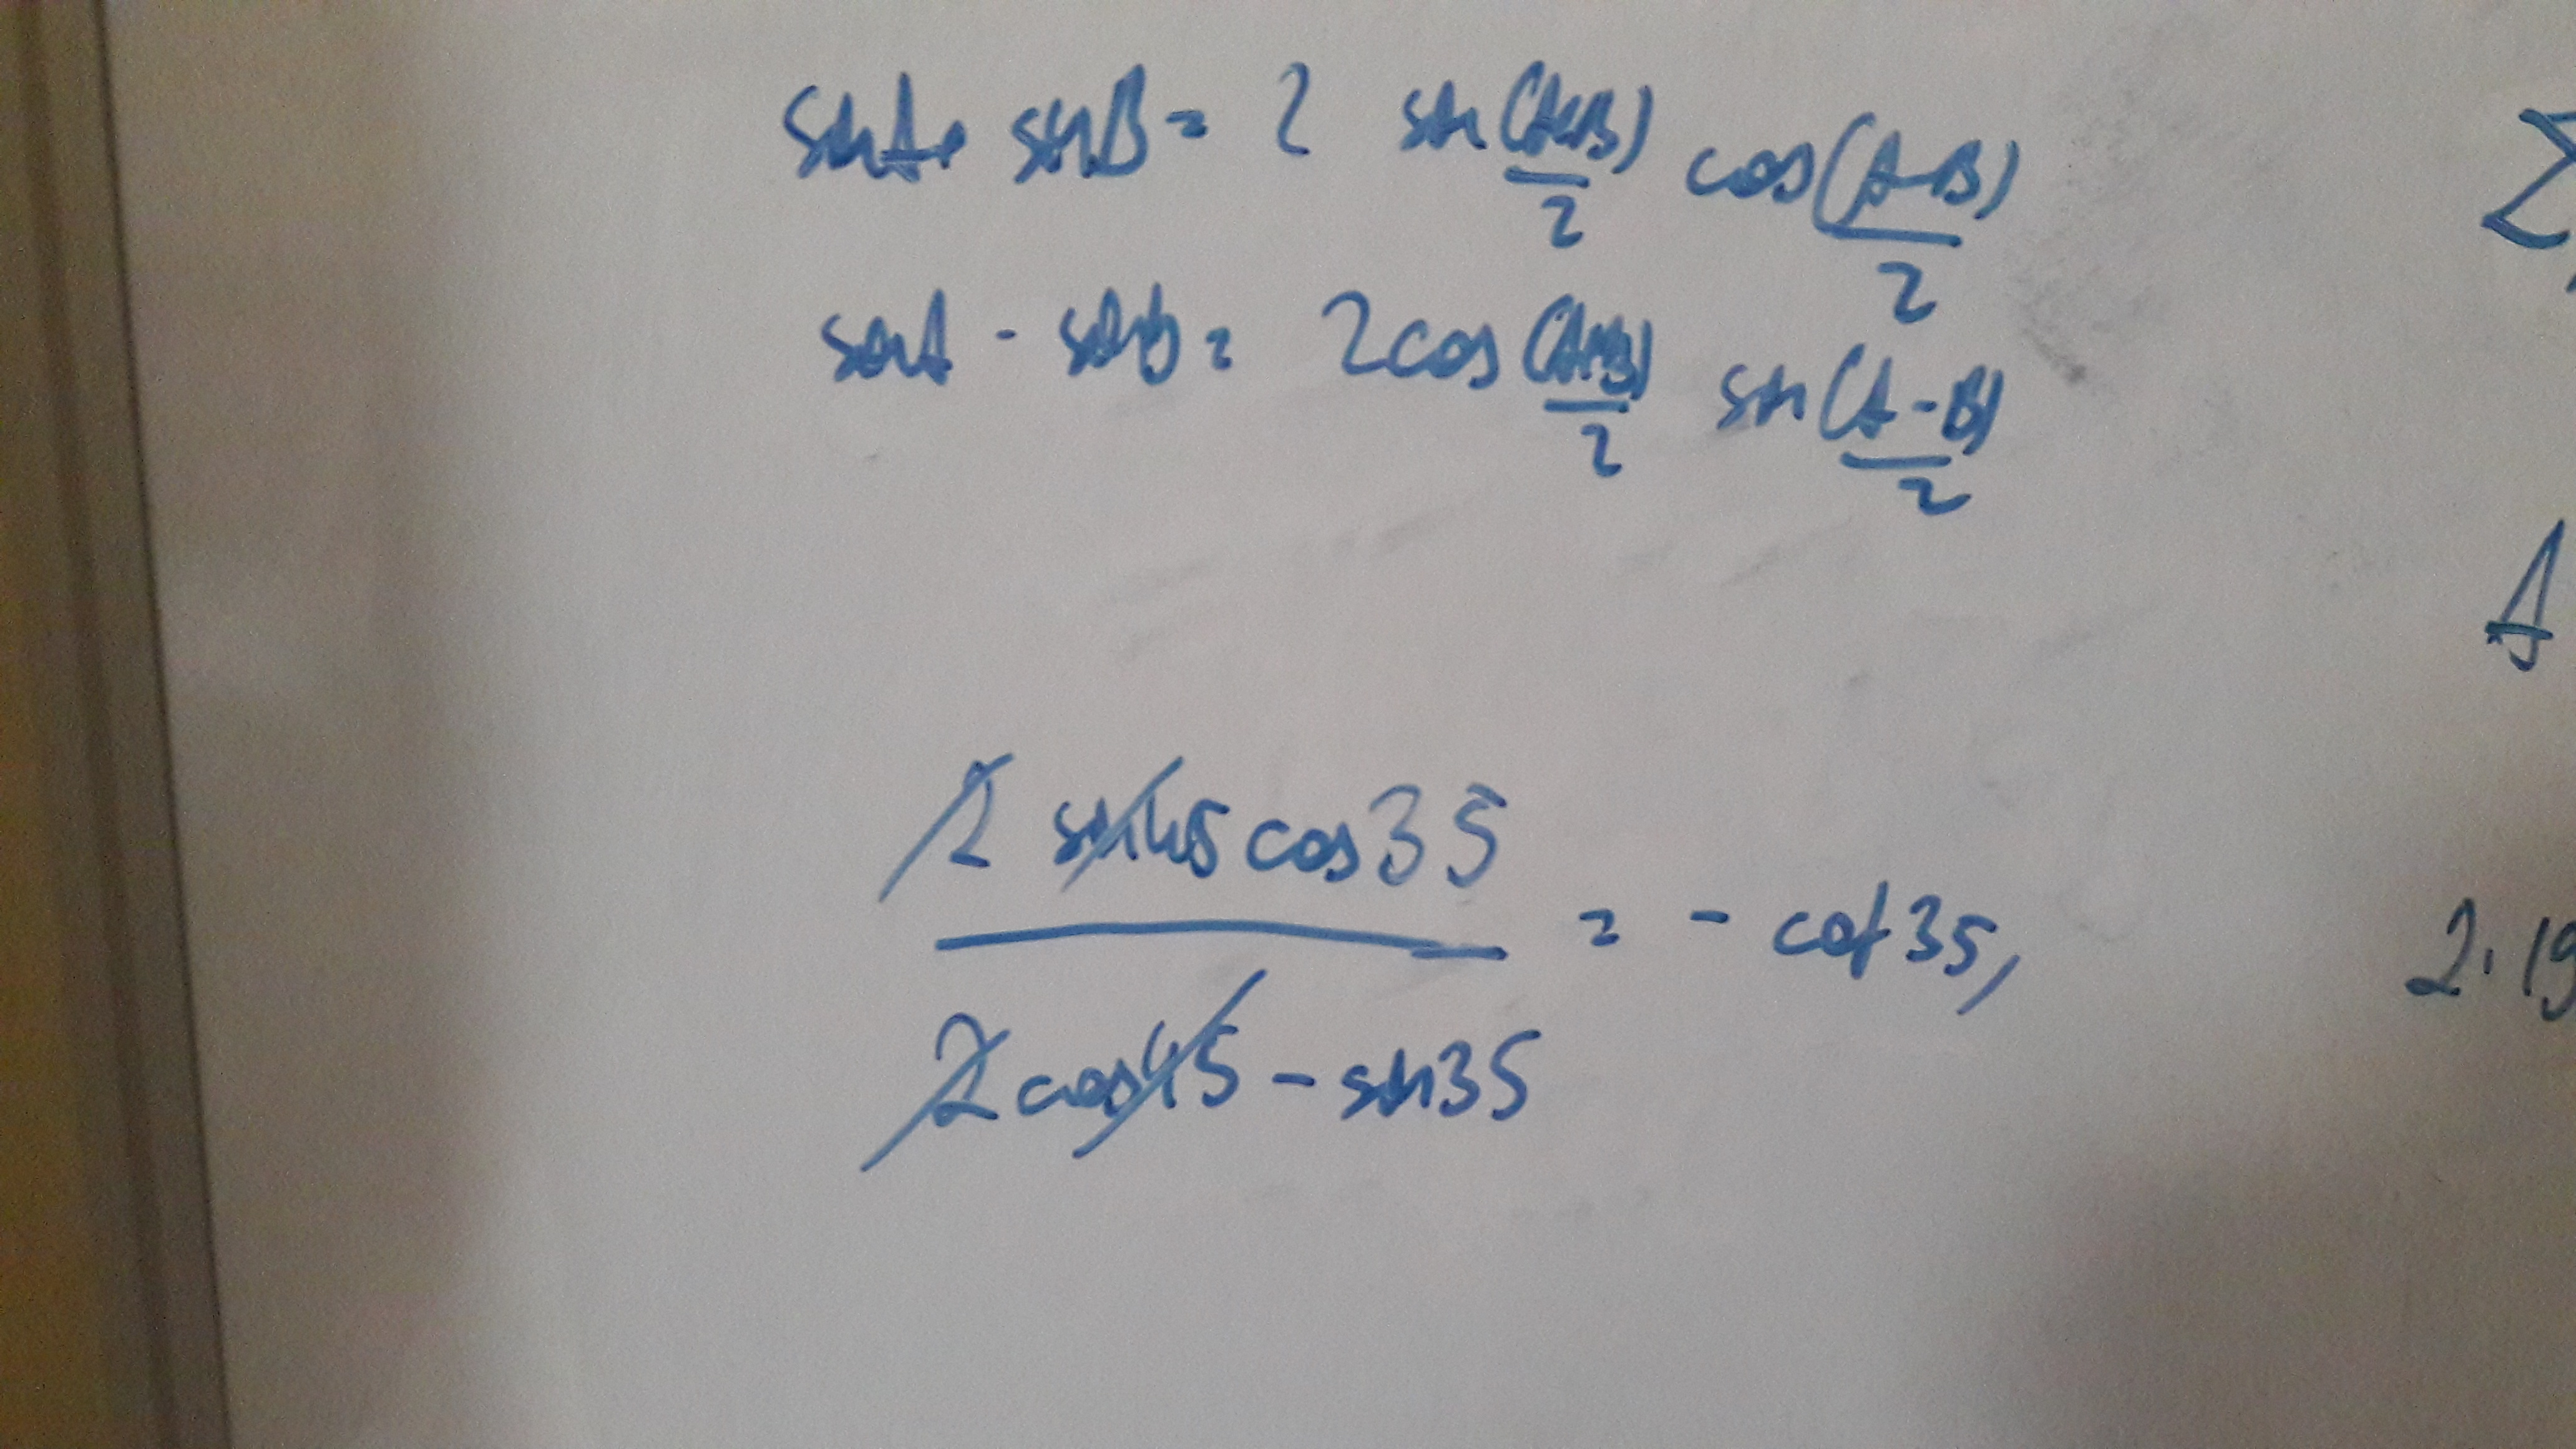 sinA + sinB = 2 sin(A+B)/2 cos(A-B)/2
sinA - sinB = 2cos(A+B)/2 sin(A-B)/2
Σ
A
2 sin45 cos35
= - cot35,
2cos45 - sin35
2.19